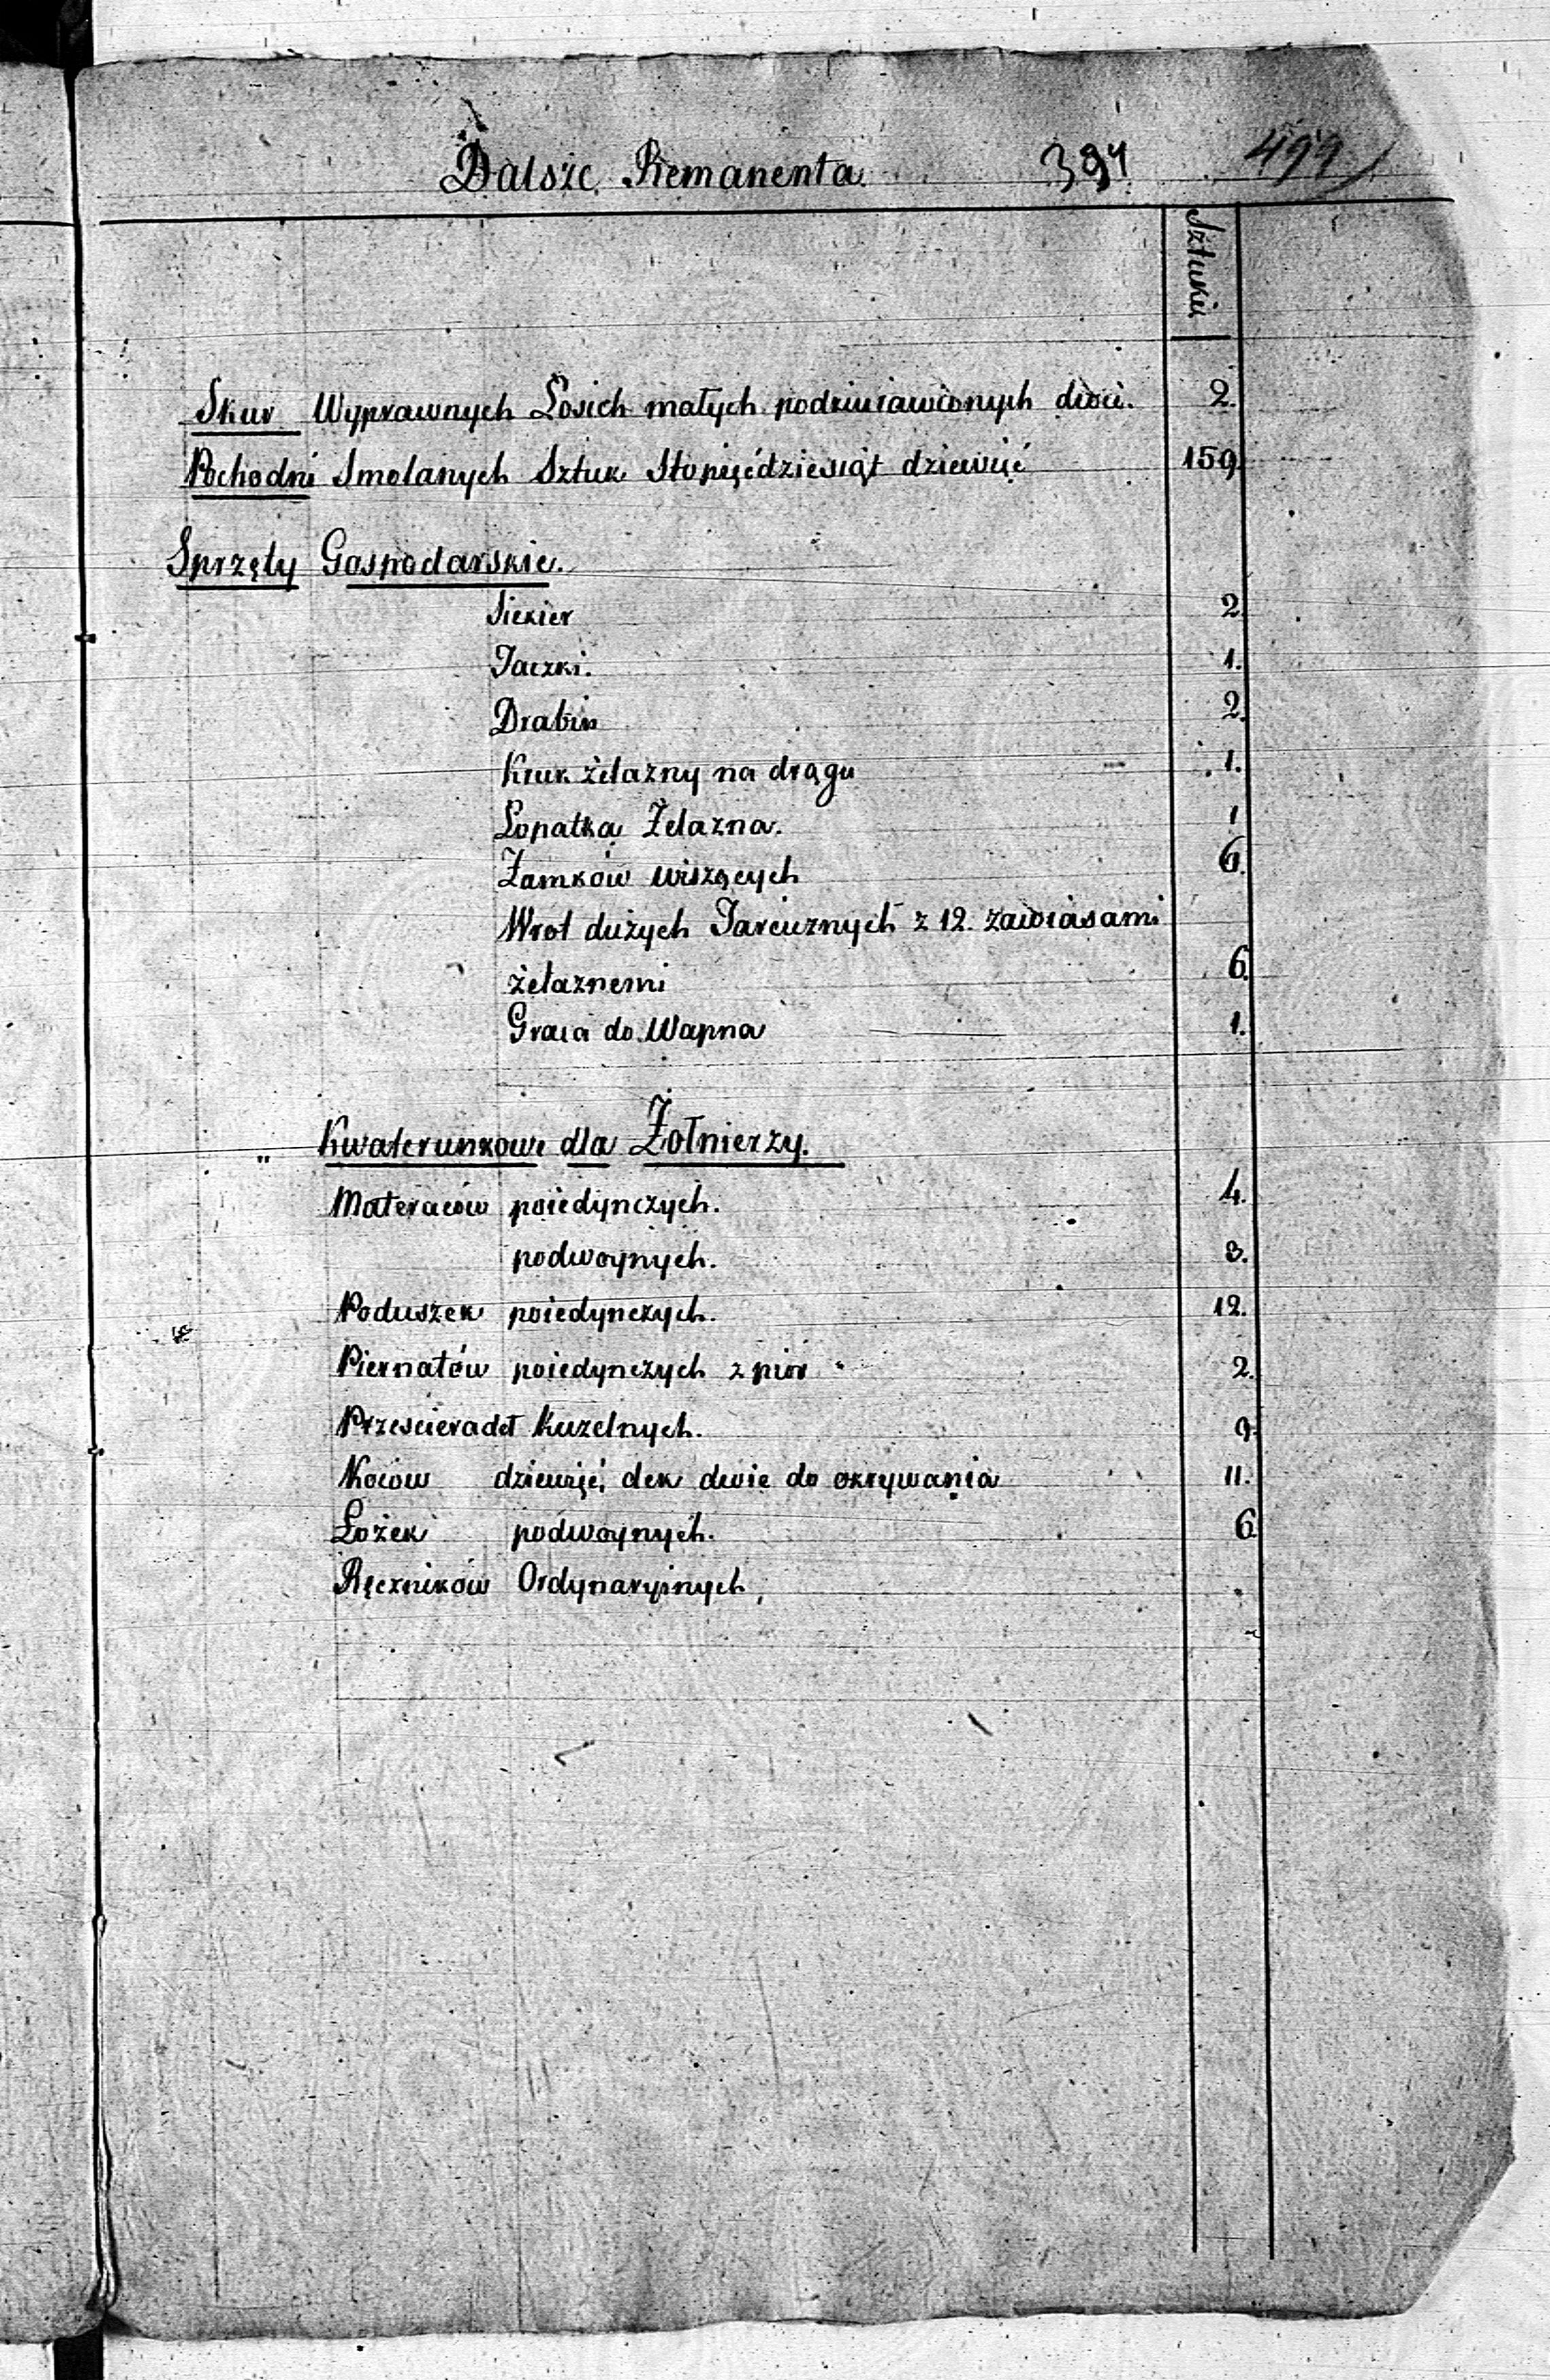 Dalsze Remanenta. 394 499
Sztuki
Skur Wyprawnych Łosich małych podziurawionych dwie. 2.
Pochodni Smolanych Sztuk Stopięćdziesiąt dziewięć 159.
Sprzęty Gospodarskie.
Siekier 2.
Taczki. 1.
Drabin 2.
Kruk żelazny na drągu 1.
Łopatka Żelazna. 1
Zamków wiszących 6.
Wrot dużych Tarcicznych z 12. zawiasami
żelaznemi 6.
Graca do Wapna 1.
„ Kwaterunkowe dla Żołnierzy.
Materaców poiedynczych. 4.
podwoynych. 8.
Poduszek poiedynczych. 12.
Piernatów poiedynczych z pior 2.
Prześcieradeł Kuzelnych. 9.
Koców dziewięć, dek dwie do okrywania 11.
Łożek podwoynych. 6
Ręczników Ordynaryinych,